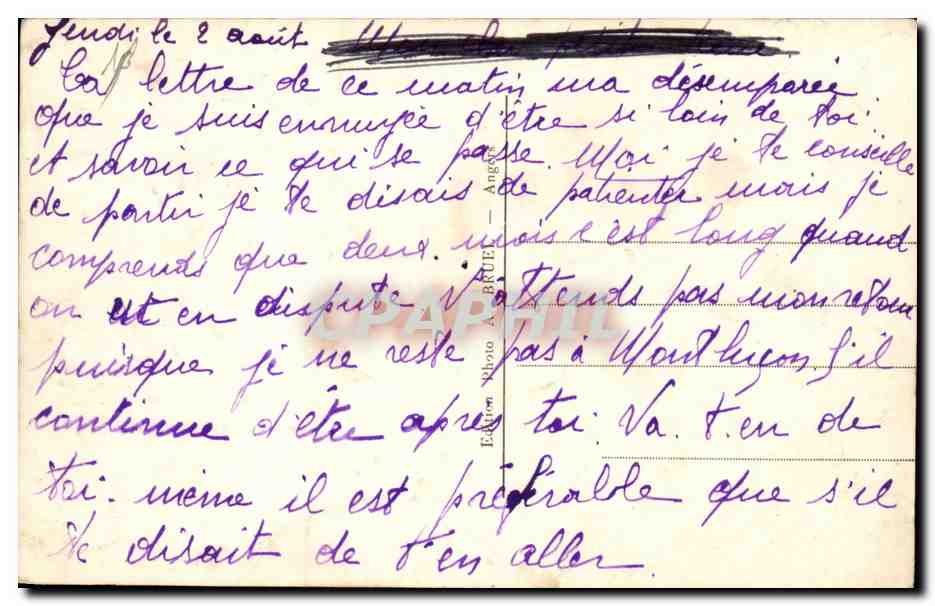 Jeudi le 2 août
Ta lettre de ce matin m'a désemparée
que je suis ennuyée d'être si loin de toi
et savoir ce qui se passe. Moi je te conseille
de partir je te disais de patienter mais je
comprends que deux mois c'est long quand
on est en dispute N'attends pas mon retour
puisque je ne reste pas à Montluçon. S'il
continue d'être après toi. Va. t.en de
toi-même il est préférable que s'il
te disait de t'en aller.
Edition Photo A. BRUEL — Angers
CPAPHIL